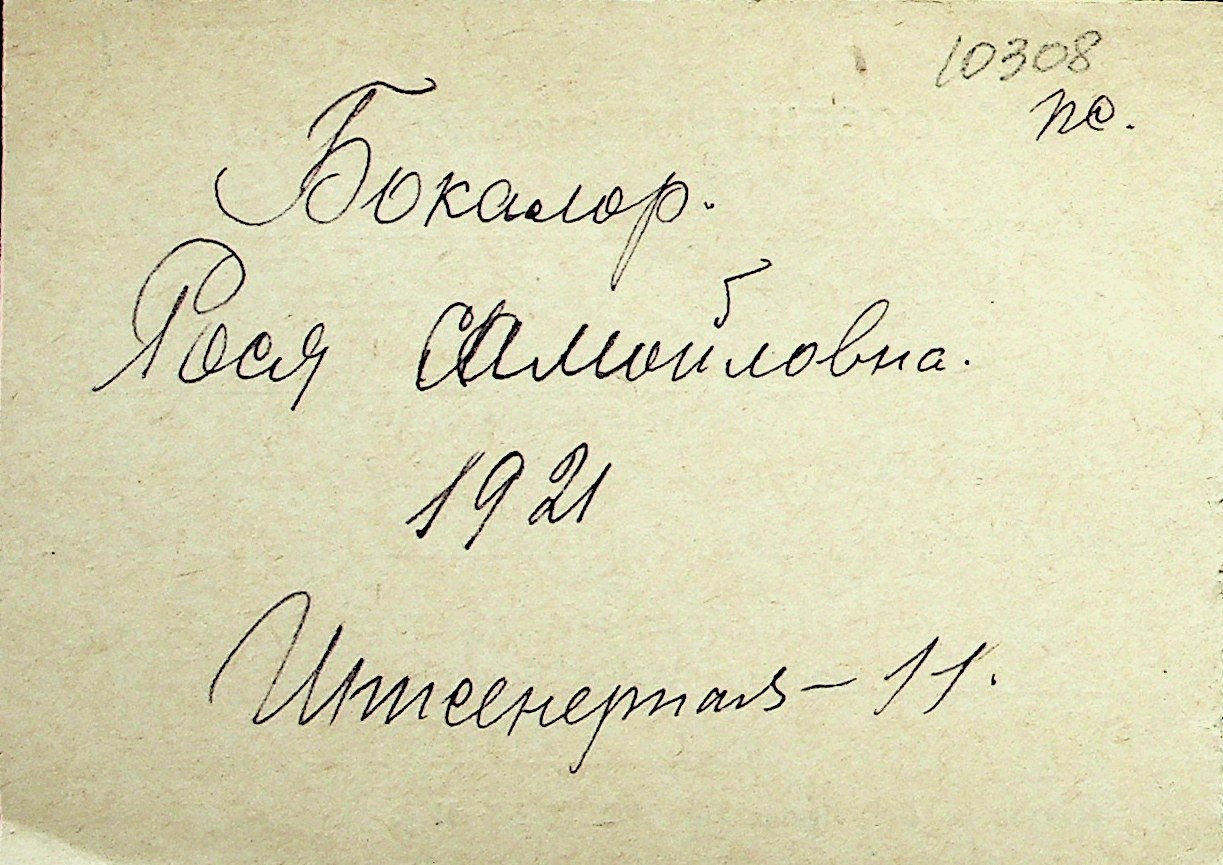 10308
пс.
Бокалор.
Рося Самойловна.
1921
Инженерная - 11.